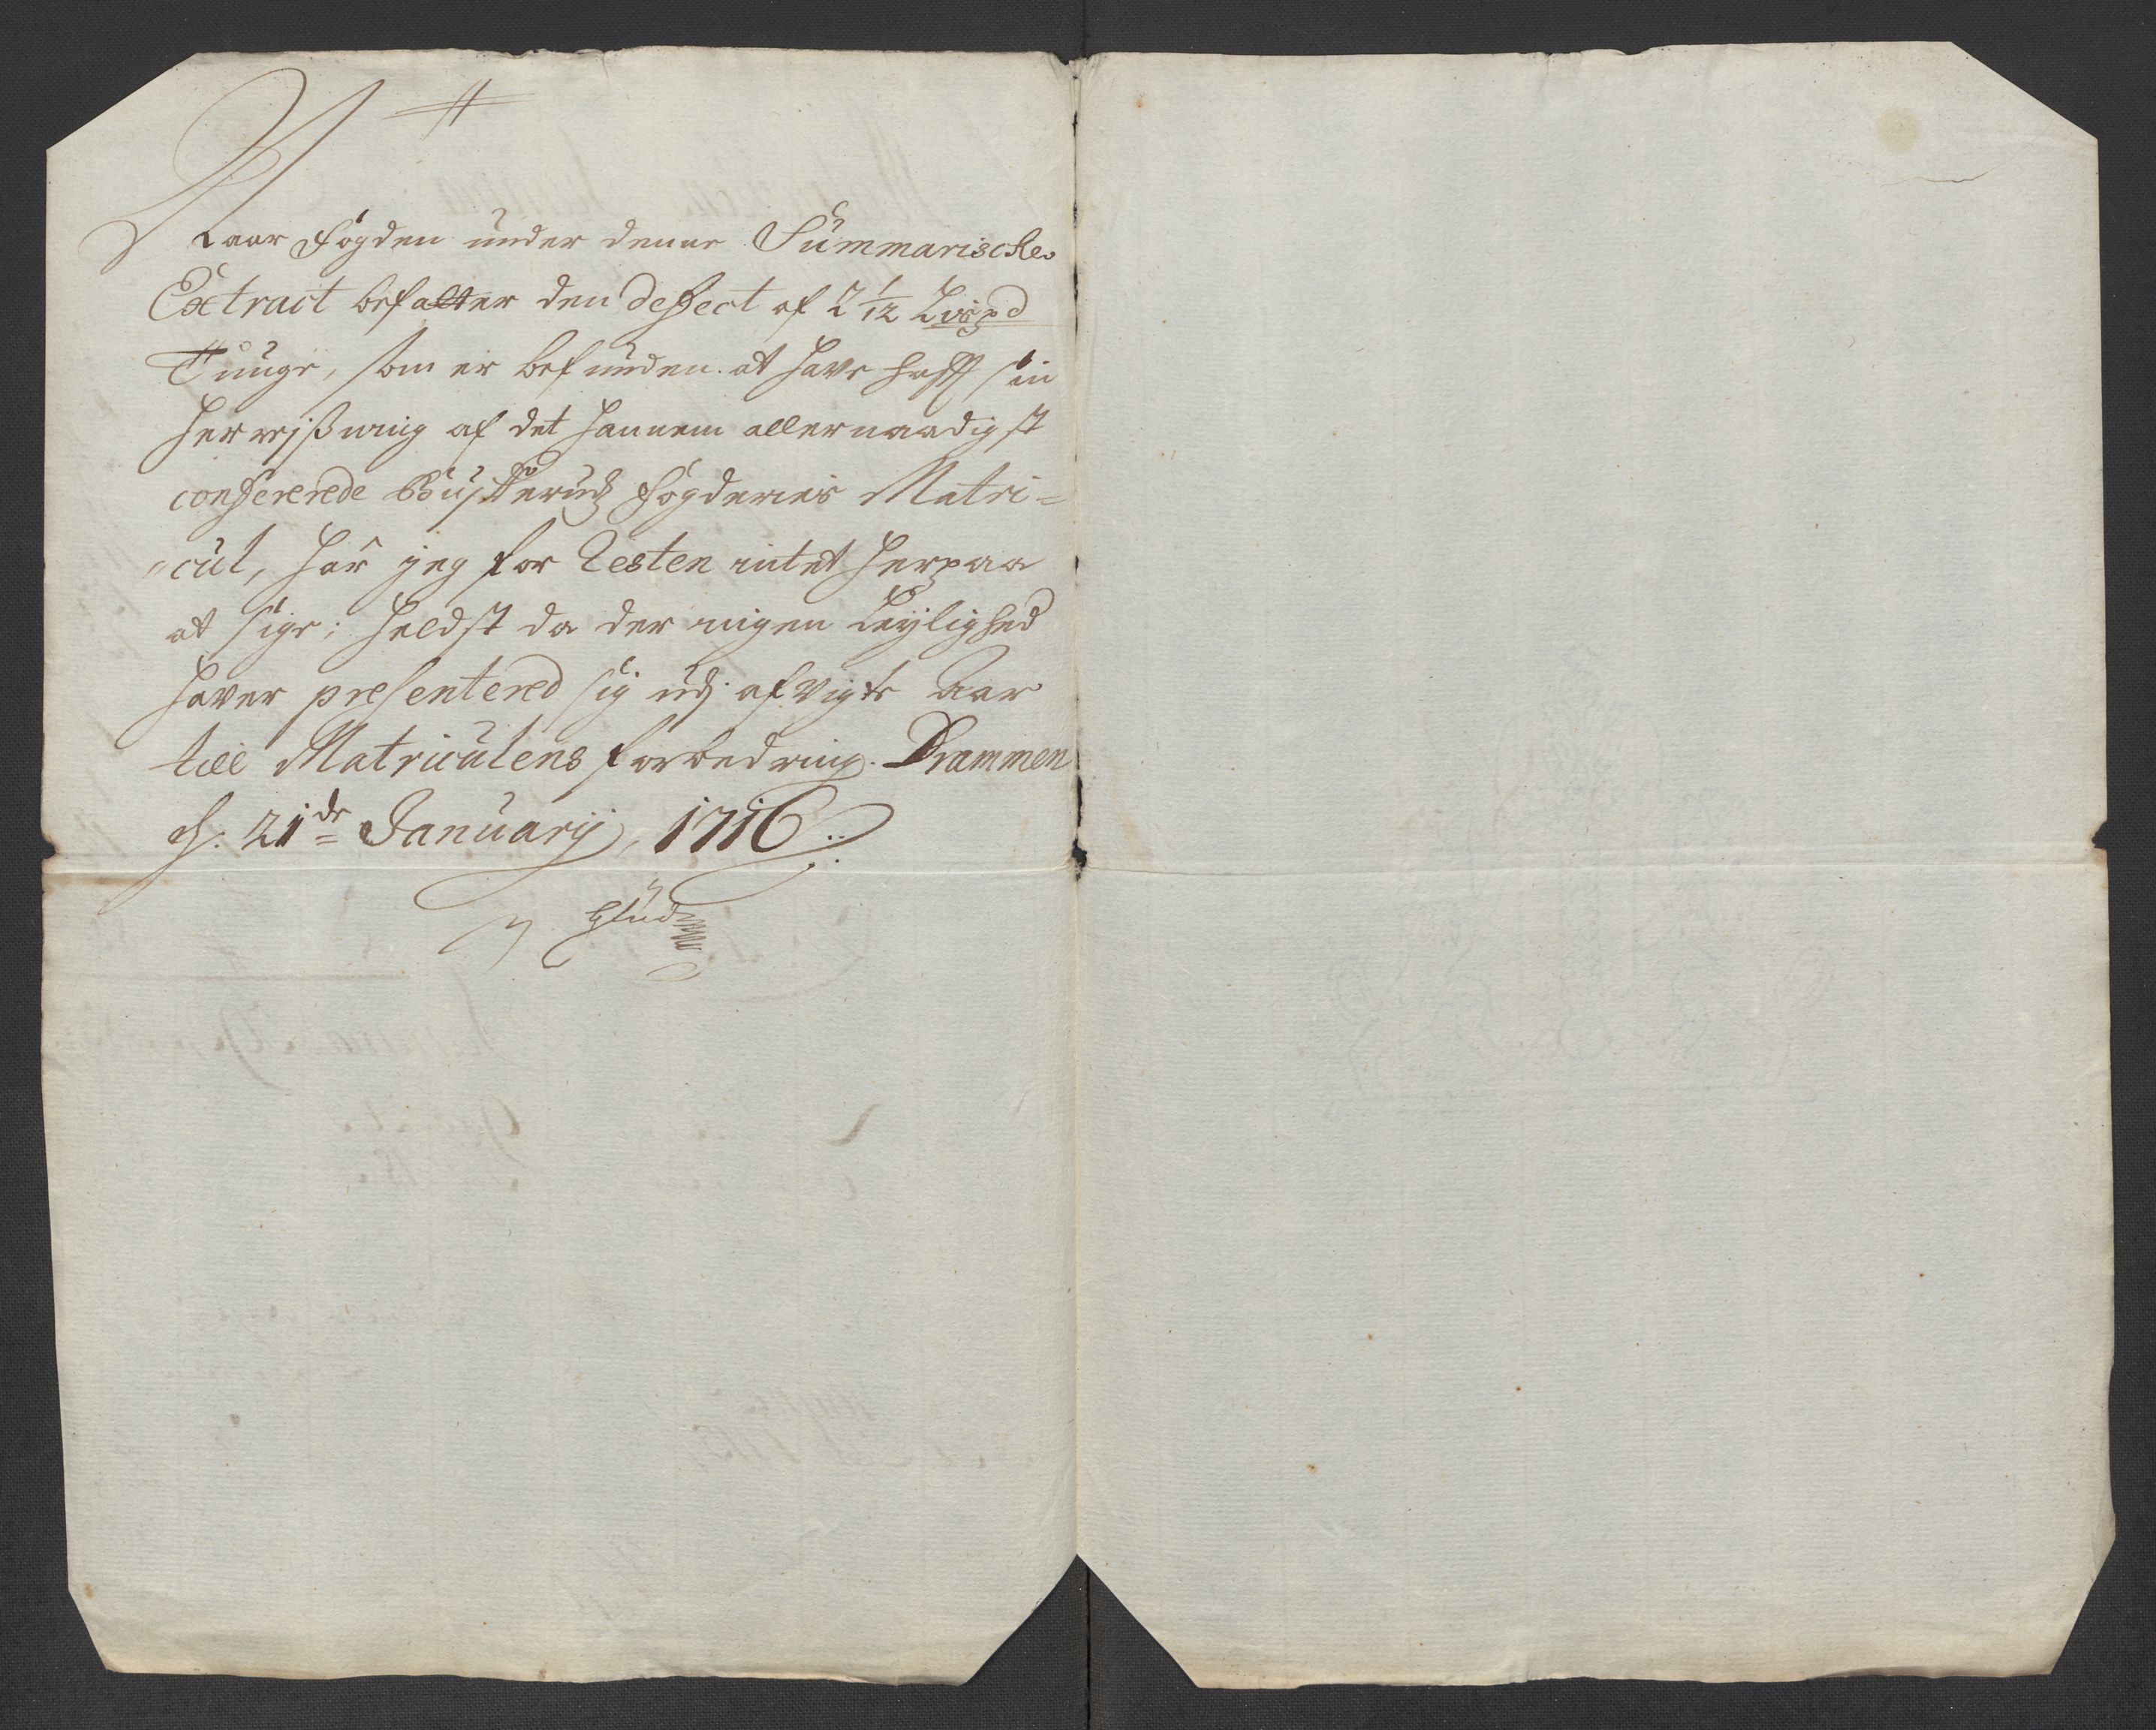 Naar Fogden under denne Summariske
Extract befatter den defect af 2 1/12 Lispd
Tunge, som er befunden at have hafft sin
Henvjsßning af det hannem allernaadigst
confererede Buskeruds Fogderies Matri=
"cul, har jeg for Resten intet herpaa
at sige; heldst da der ingen Leylighed
haver presentered sig udj afvigte Aar
till Matriculens forbedring. Drammen
d. 21de Januarij, 1716